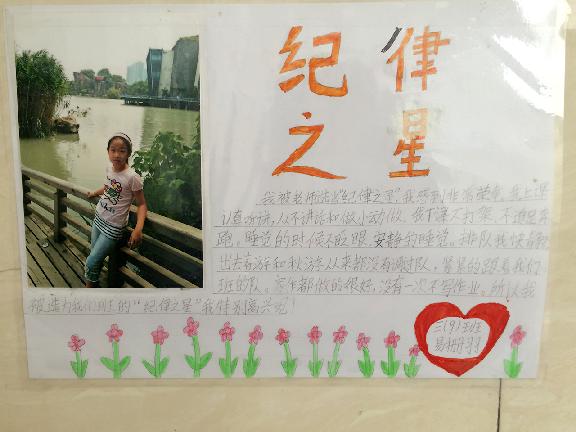 纪律
之星
我被老师选为"纪律之星"我感到非常荣幸,我上课
认真听讲,从不讲话和做小动做,我下课不打架,不追
跑,睡觉的时候不眨眼,安静的睡觉。排队我快
出去春游和秋游从来都没有掉过队,紧紧的跟着我们
班的队,家作都做的很好,没有一次不写作业。所以我
被选为我们班的"纪律之星"我特别高兴呢!
三(9)班
易姗羽